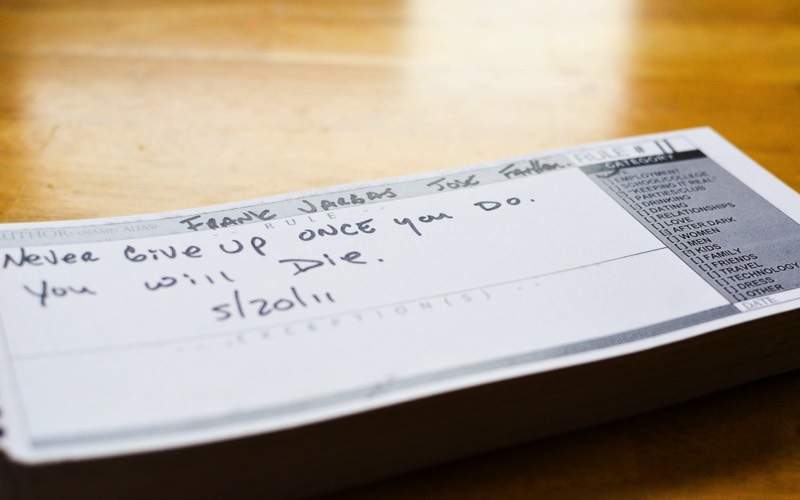 AUTHOR FRANK VARGAS JOSE
RULE # 11
RULE
Never Give up ONCE you Do.
You will Die.
5/20/11
EXCEPTION(S)
CATEGORY
[ ] EMPLOYMENT
[ ] SCHOOL/COLLEGE
[ ] "KEEPING IT REAL"
[ ] PARTIES/CLUB
[ ] DRINKING
[ ] DATING
[ ] RELATIONSHIPS
[ ] LOVE
[ ] AFTER DARK
[ ] WOMEN
[ ] MEN
[ ] KIDS
[ ] FAMILY
[ ] FRIENDS
[ ] TRAVEL
[ ] TECHNOLOGY
[ ] DRESS
[ ] OTHER
DATE